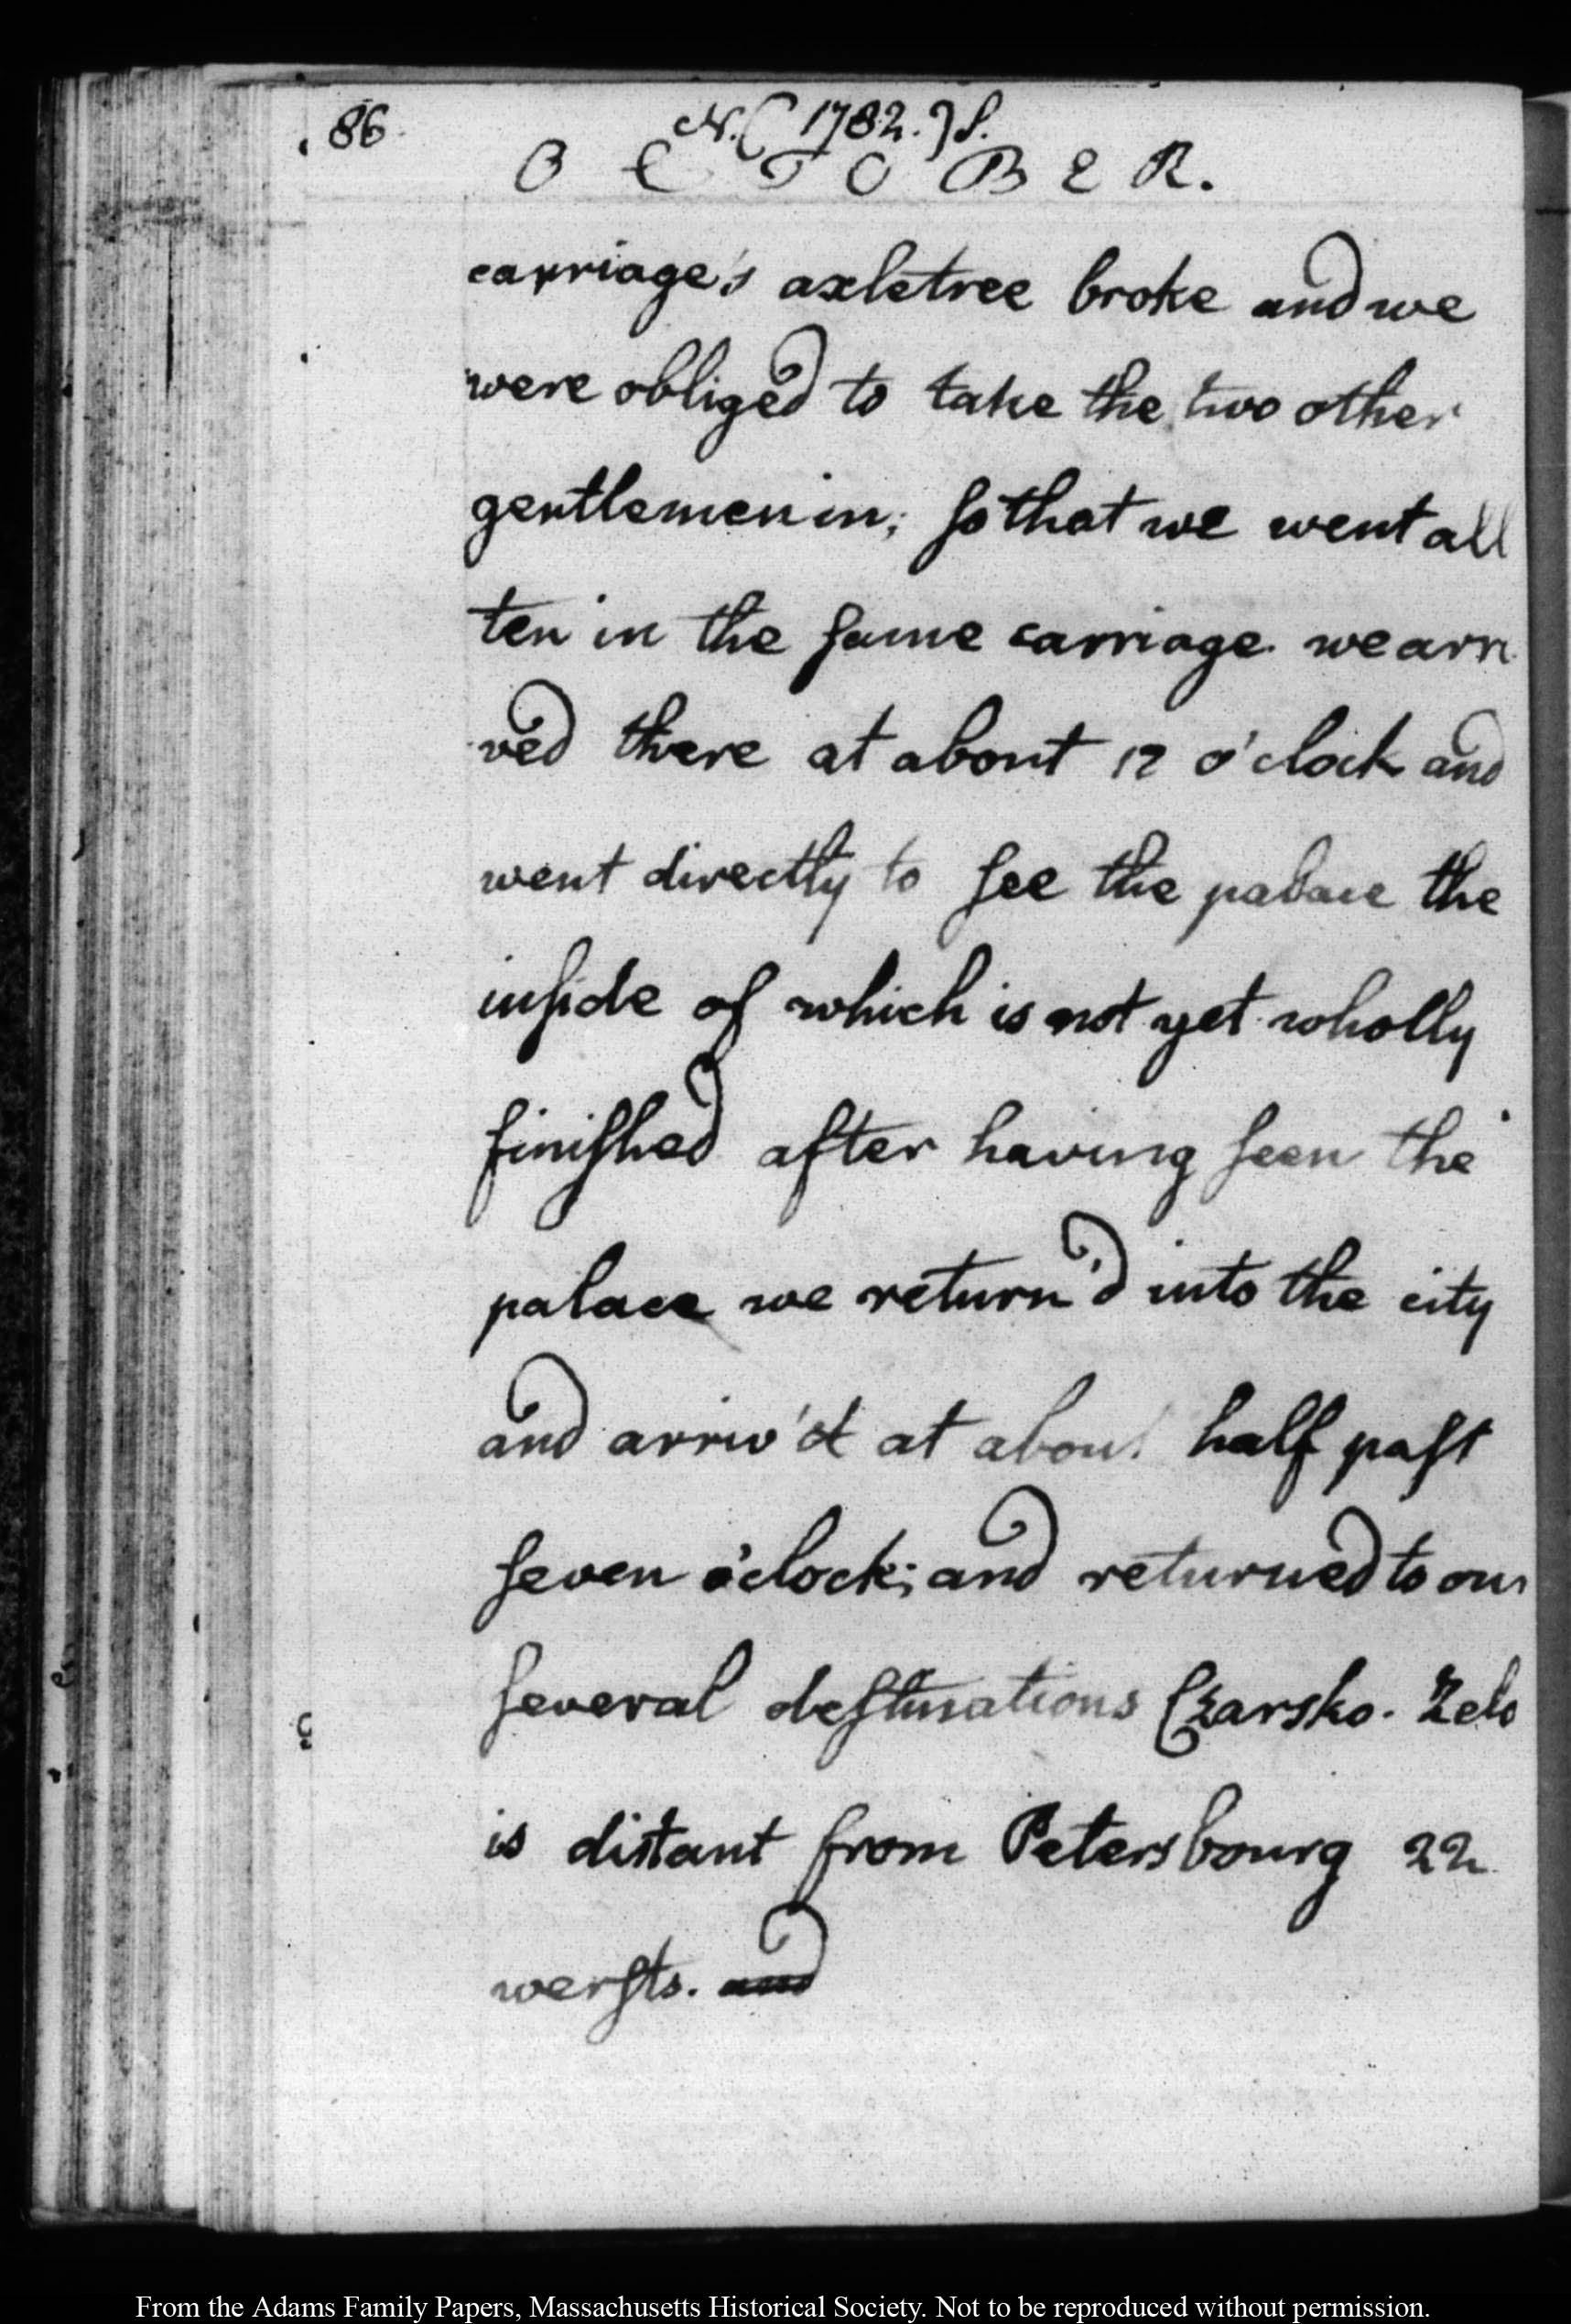 86
N.( 1782. )S.
OCTOBER.
carriage's axletree broke and we
were obliged to take the two other
gentlemen in; so that we went all
ten in the same carriage. we arri
ved there at about 12 o'clock and
went directly to see the palace the
inside of which is not yet wholly
finished after having seen the
palace we return'd into the city
and arriv'd at about half past
seven o'clock; and returned to our
several destinations Czarsko. Zelo
is distant from Petersbourg 22
wersts. and
From the Adams Family Papers, Massachusetts Historical Society. Not to be reproduced without permission.